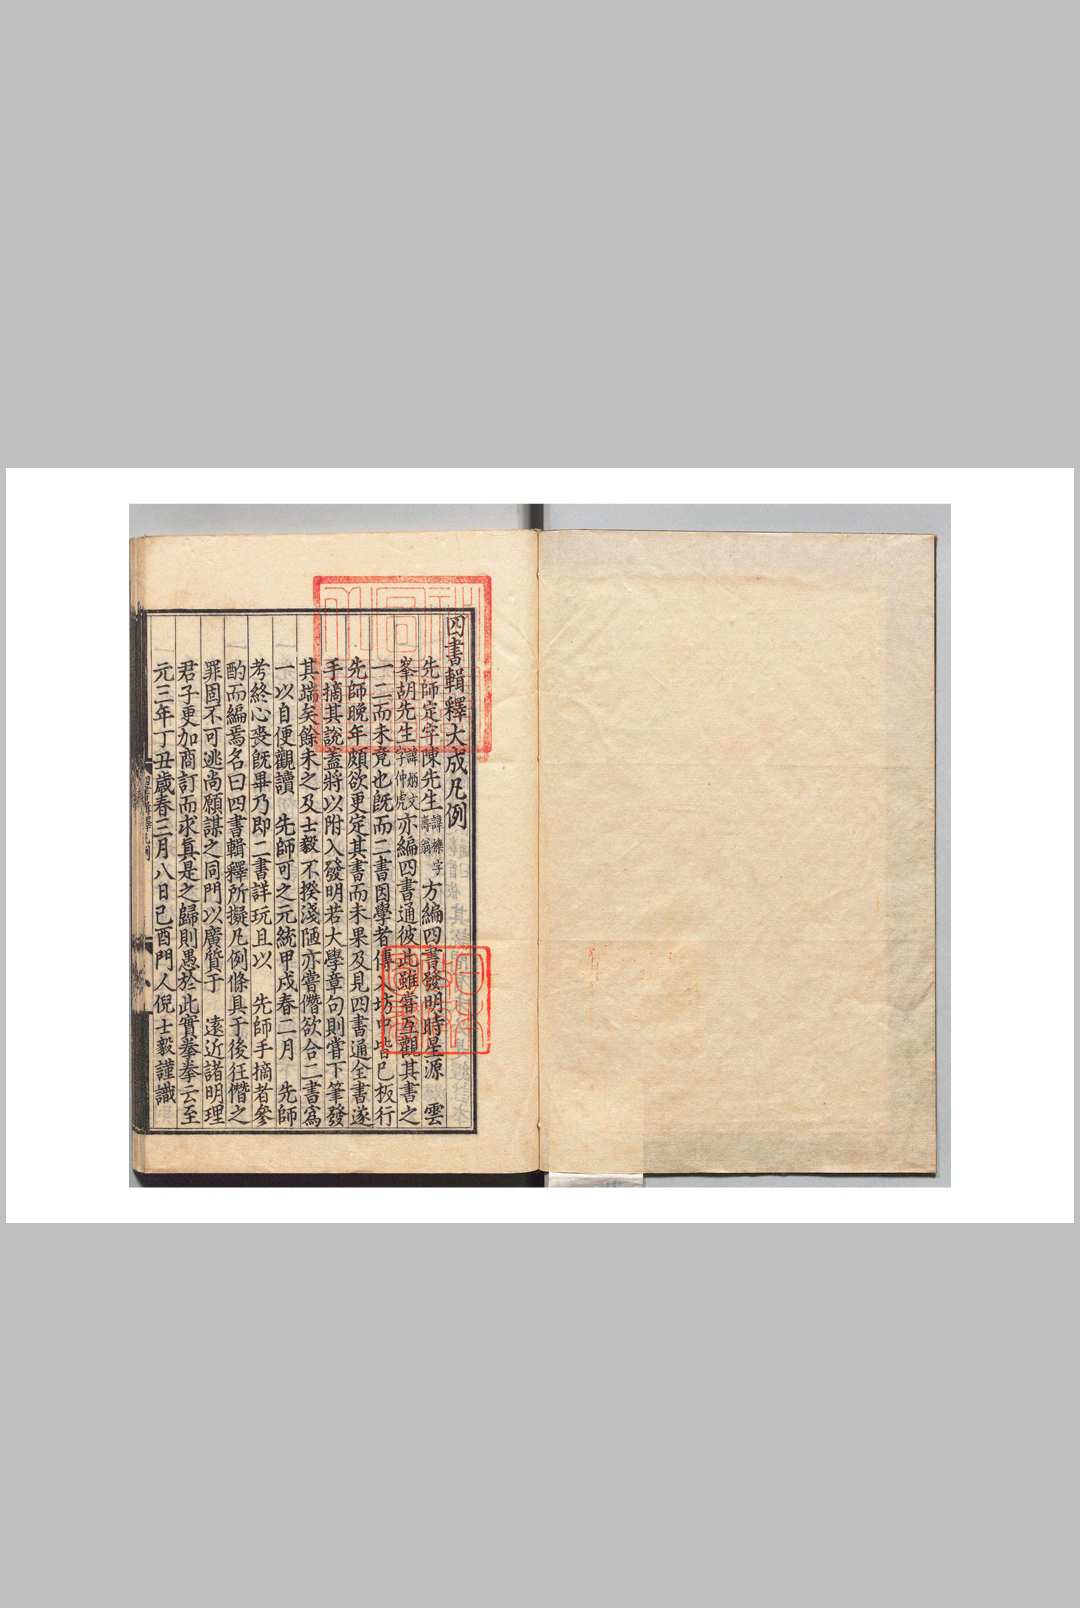 四書輯釋大成凡例
先師定宇陳先生諱櫟字壽翁方編四書發明時星源 雲
峯胡先生諱炳文字仲虎亦編四書通彼此雖嘗互觀其書之
一二而未竟也旣而二書因學者傳入坊中皆已板行
先師晚年頗欲更定其書而未果及見四書通全書遂
手摘其說蓋將以附入發明若大學章句則嘗下筆發
其端矣餘未之及士毅不揆淺陋亦嘗僭欲合二書寫
一以自便觀讀 先師可之元統甲戌春二月 先師
考終心喪旣畢乃即二書詳玩且以 先師手摘者參
酌而編焉名曰四書輯釋所擬凡例條具于後狂僭之
罪固不可逃尚願謀之同門以廣質于 遠近諸明理
君子更加商訂而求眞是之歸則愚於此實拳拳云至
元三年丁丑歲春三月八日己酉門人倪士毅謹識